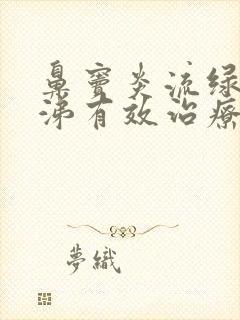 鼻窦炎流绿
涕有效治疗
夢織